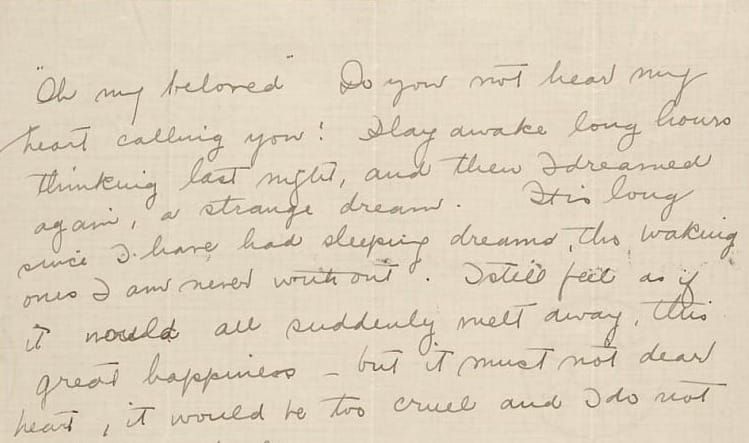 "Oh my beloved" Do you not hear my
heart calling you! I lay awake long hours
thinking last night, and then I dreamed
again, a strange dream. It is long
since I have had sleeping dreams, tho waking
ones I am never without. I still feel as if
it would all suddenly melt away, this
great happiness – but it must not dear
heart, it would be too cruel and I do not